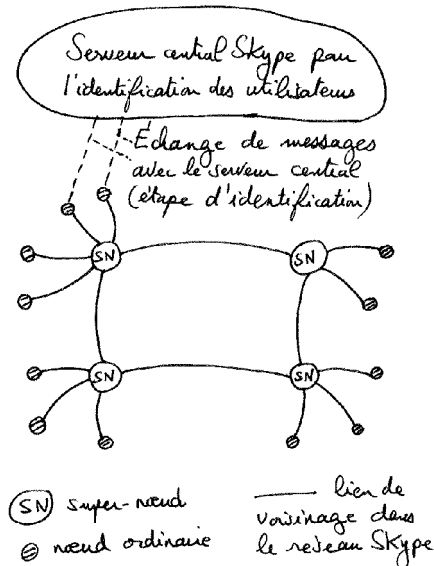 Serveur central Skype pour
l'identification des utilisateurs
Échange de messages
avec le serveur central
(étape d'identification)
SN
SN
SN
SN
SN super-nœud
nœud ordinaire
lien de
voisinage dans
le reseau Skype